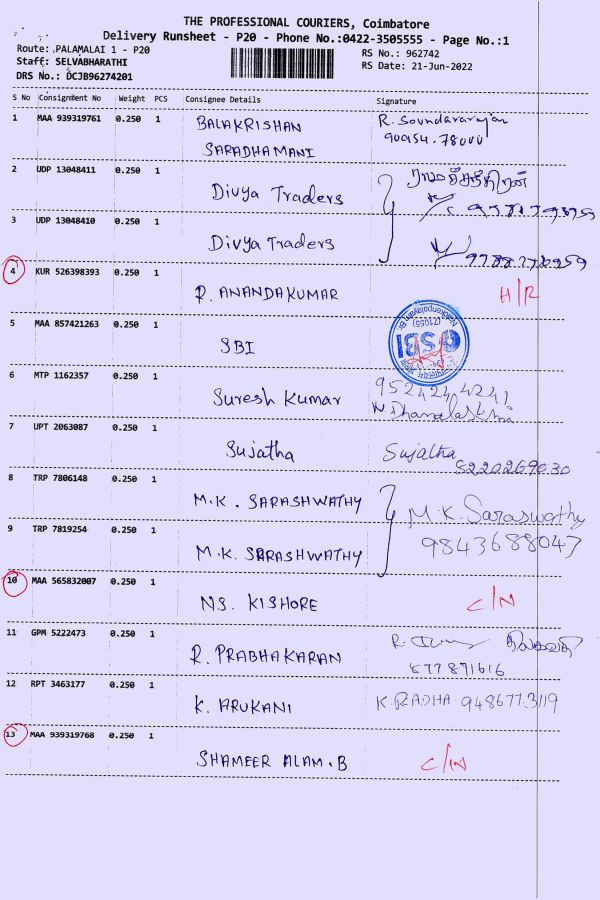 THE PROFESSIONAL COURIERS, Coimbatore
Delivery Runsheet - P20 - Phone No.:0422-3505555 - Page No.:1
Route: PALAMALAI 1 - P20
Staff: SELVABHARATHI
DRS No.: DCJB96274201
RS No.: 962742
RS Date: 21-Jun-2022
S No Consignment No Weight PCS Consignee Details Signature
1 MAA 939319761 0.250 1 BALAKRISHAN R. Soundararajan
SARADHAMANI
2 UDP 13048411 0.250 1 Divya Traders ராமச்சந்திரன்
3 UDP 13048410 0.250 1 Divya Traders
4 KUR 526398393 0.250 1 R. ANANDAKUMAR H/R
5 MAA 857421263 0.250 1 SBI
SBI
(71055)
6 MTP 1162357 0.250 1 Suresh Kumar 9524244241
N. Dhanalakshmi
7 UPT 2063087 0.250 1 Sujatha Sujatha
8220269030
8 TRP 7806148 0.250 1 M.K. SARASHWATHY M.K. Saraswathy
9 TRP 7819254 0.250 1 M.K. SARASHWATHY 9843688047
10 MAA 565832007 0.250 1 NS. KISHORE C/N
11 GPM 5222473 0.250 1 R. PRABHAKARAN R.
877871616
12 RPT 3463177 0.250 1 K. ARUKANI K. RADHA 9486773119
13 MAA 939319768 0.250 1 SHAMEER ALAM.B C/N